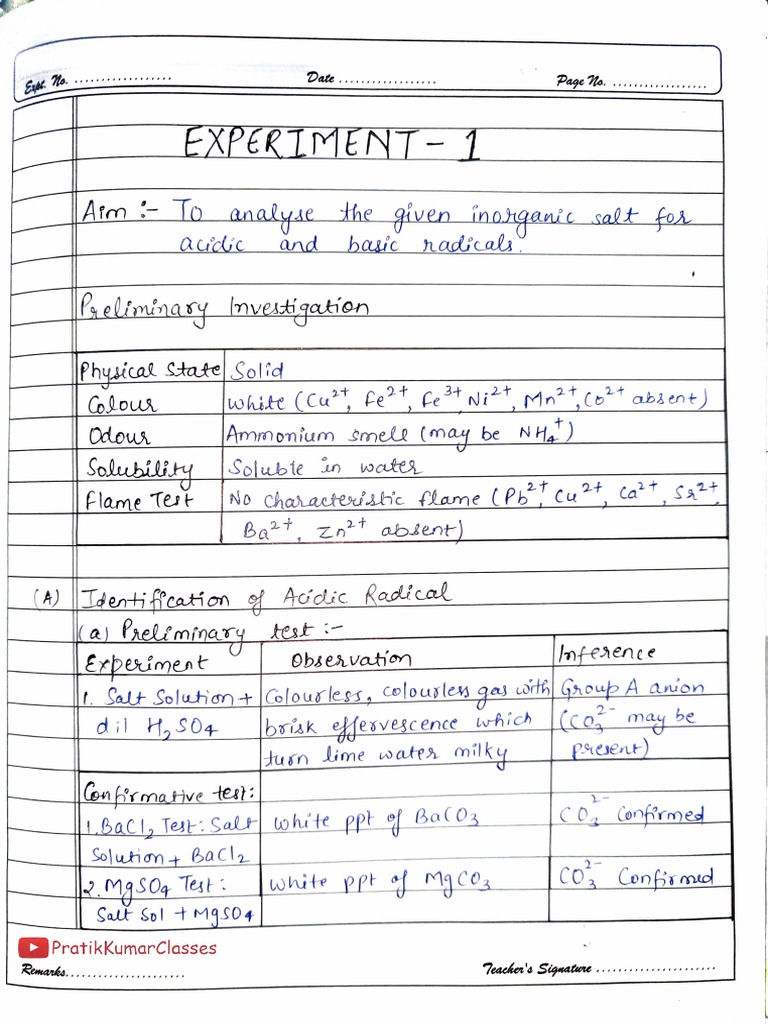 Expt. No. ..................
Date ..................
Page No. ..................
EXPERIMENT - 1
Aim :- To analyse the given inorganic salt for
acidic and basic radicals.
Preliminary Investigation
Physical State Solid
Colour White (Cu²⁺, Fe²⁺, Fe³⁺, Ni²⁺, Mn²⁺, Co²⁺ absent)
Odour Ammonium smell (may be NH₄⁺)
Solubility Soluble in water
Flame Test No characteristic flame (Pb²⁺, Cu²⁺, Ca²⁺, Sr²⁺,
Ba²⁺, Zn²⁺ absent)
(A) Identification of Acidic Radical
(a) Preliminary test :-
Experiment Observation Inference
1. Salt Solution + Colourless, colourless gas with Group A anion
dil H₂SO₄ brisk effervescence which (CO₃²⁻ may be
turn lime water milky present)
Confirmative test:
1. BaCl₂ Test: Salt White ppt of BaCO₃ CO₃²⁻ Confirmed
Solution + BaCl₂
2. MgSO₄ Test: White ppt of MgCO₃ CO₃²⁻ Confirmed
Salt Sol + MgSO₄
PratikKumarClasses
Remarks......................
Teacher's Signature ......................